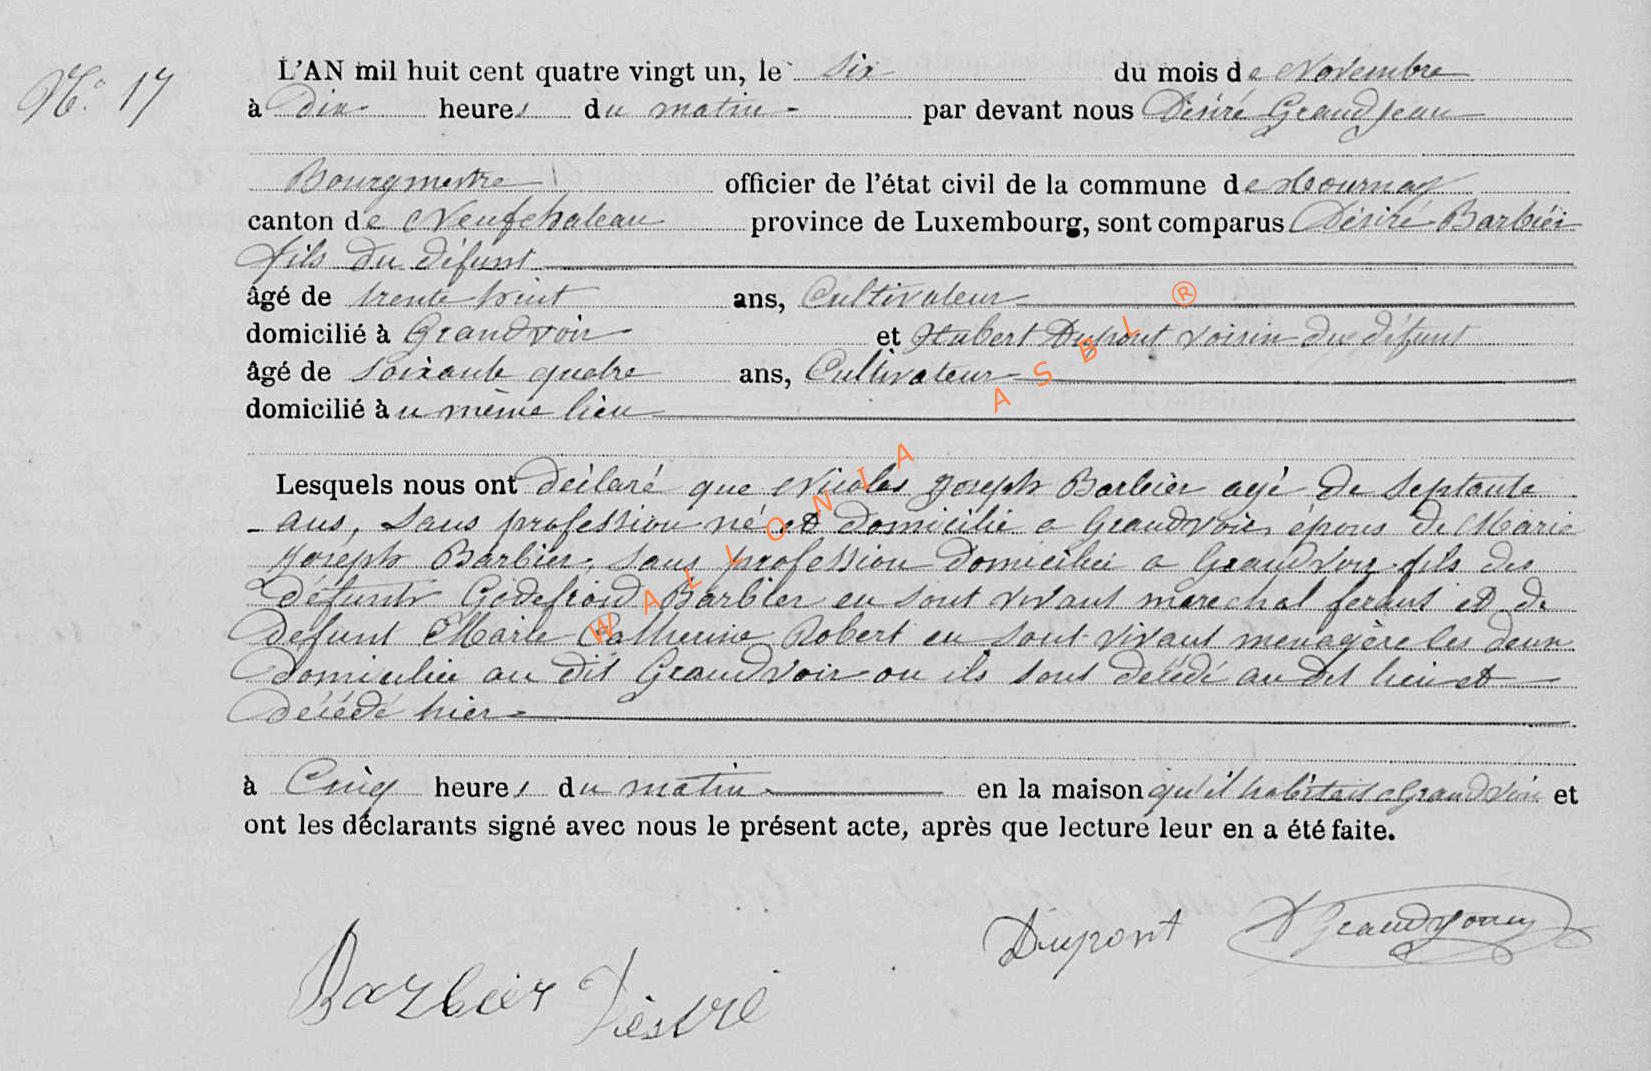 N° 17
L'AN mil huit cent quatre vingt un, le six du mois de Novembre
à dix heures du matin par devant nous Désiré Grandjean
Bourgmestre officier de l'état civil de la commune de Tournay
canton de Neufchateau province de Luxembourg, sont comparus Désiré Barbier
fils du défunt
âgé de trente huit ans, Cultivateur
domicilié à Grandvoir et Hubert Dupont voisin du défunt
âgé de soixante quatre ans, Cultivateur
domicilié àu même lieu
Lesquels nous ont déclaré que Nicolas Joseph Barbier agé de Septante
ans, sans profession né et domicilié a Grandvoir, épous de Marie
Joseph Barbier, sans profession domiciliée a Grandvoir fils des
défunts Godefroid Barbier en sont vivant marechal ferant et de
defunt Marie Catherine Robert en sont vivant menagère les deux
domiciliée au dit Grandvoir ou ils sont décédé au dit lieu et
décédé hier
à Cinq heures du matin en la maison qu'il habitait a Grandvoir et
ont les déclarants signé avec nous le présent acte, après que lecture leur en a été faite.
Dupont D Grandjean
Barbier Désiré
WALLONIA ASBL ®